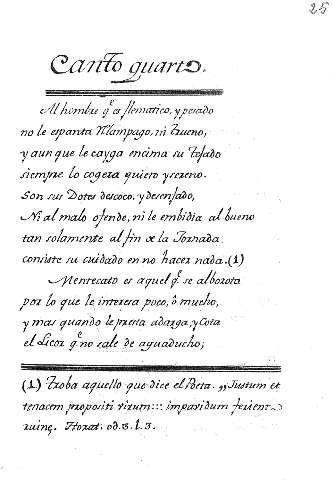 25
Canto quarto.
Al hombre q.e es flematico, y pesado
no le espanta Relampago, ni trueno,
y aunque le cayga encima su tejado
siempre lo cogera quieto y sereno.
Son sus Dotes descoco, y desenfado,
Ni al malo ofende, ni le embidia al bueno
tan solamente al fin de la Jornada
consiste su cuidado en no hacer nada. (1)
Mentecato es aquel q.e se alborota
por lo que le interesa poco, ò mucho,
y mas quando le presta adarga, y Cota
el Licor q.e no sale de aguaducho;
(1) Troba aquello que dice el Poeta. „ Justum et
tenacem propositi virum::: impavidum ferient
ruinę. Horat. od. 3. l. 3.